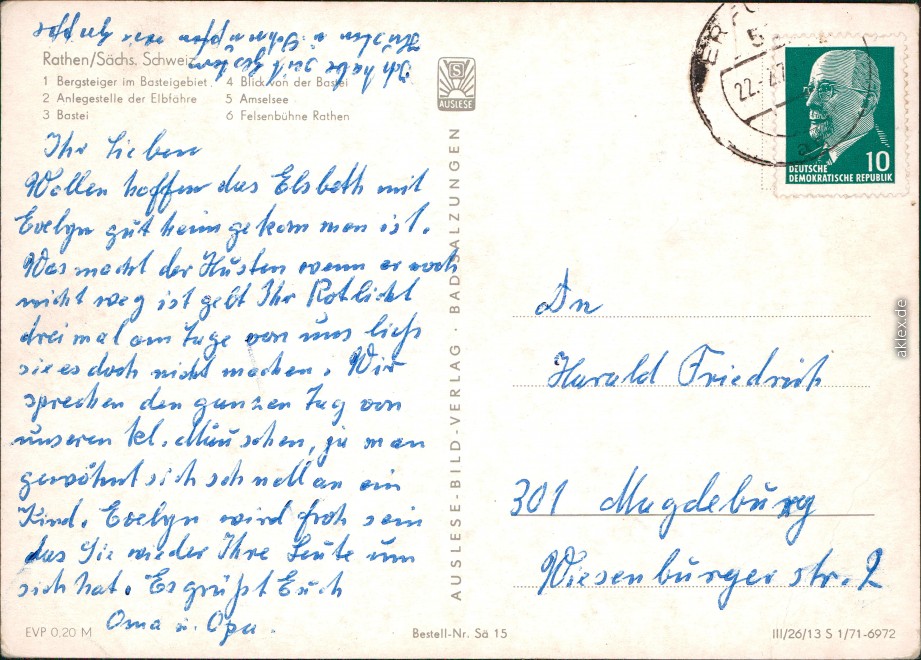 Rathen/Sächs. Schweiz
1 Bergsteiger im Basteigebiet
2 Anlegestelle der Elbfähre
3 Bastei
4 Blick von der Bastei
5 Amselsee
6 Felsenbühne Rathen
Ich habe
Ihr Lieben
Wollen hoffen das Elsbeth mit
Evelyn gut heimgekommen ist.
Was macht der Husten wenn er noch
nicht weg ist gebt Ihr Rotlicht
dreimal am Tage von uns ließ
sie es doch nicht machen. Wir
sprechen den ganzen Tag von
unseren kl. Mäuschen, ja man
gewöhnt sich schnell an ein
Kind. Evelyn wird froh sein
das Sie wieder Ihre Leute um
sich hat. Es grüßt Euch
Oma u. Opa.
EVP 0,20 M
AUSLESE
AUSLESE-BILD-VERLAG · BAD SALZUNGEN
Bestell-Nr. Sä 15
ERFU
5
22.
DEUTSCHE
DEMOKRATISCHE REPUBLIK
10
An
Harald Friedrich
301 Magdeburg
Wiesenburger str. 2
III/26/13 S 1/71-6972
aklex.de